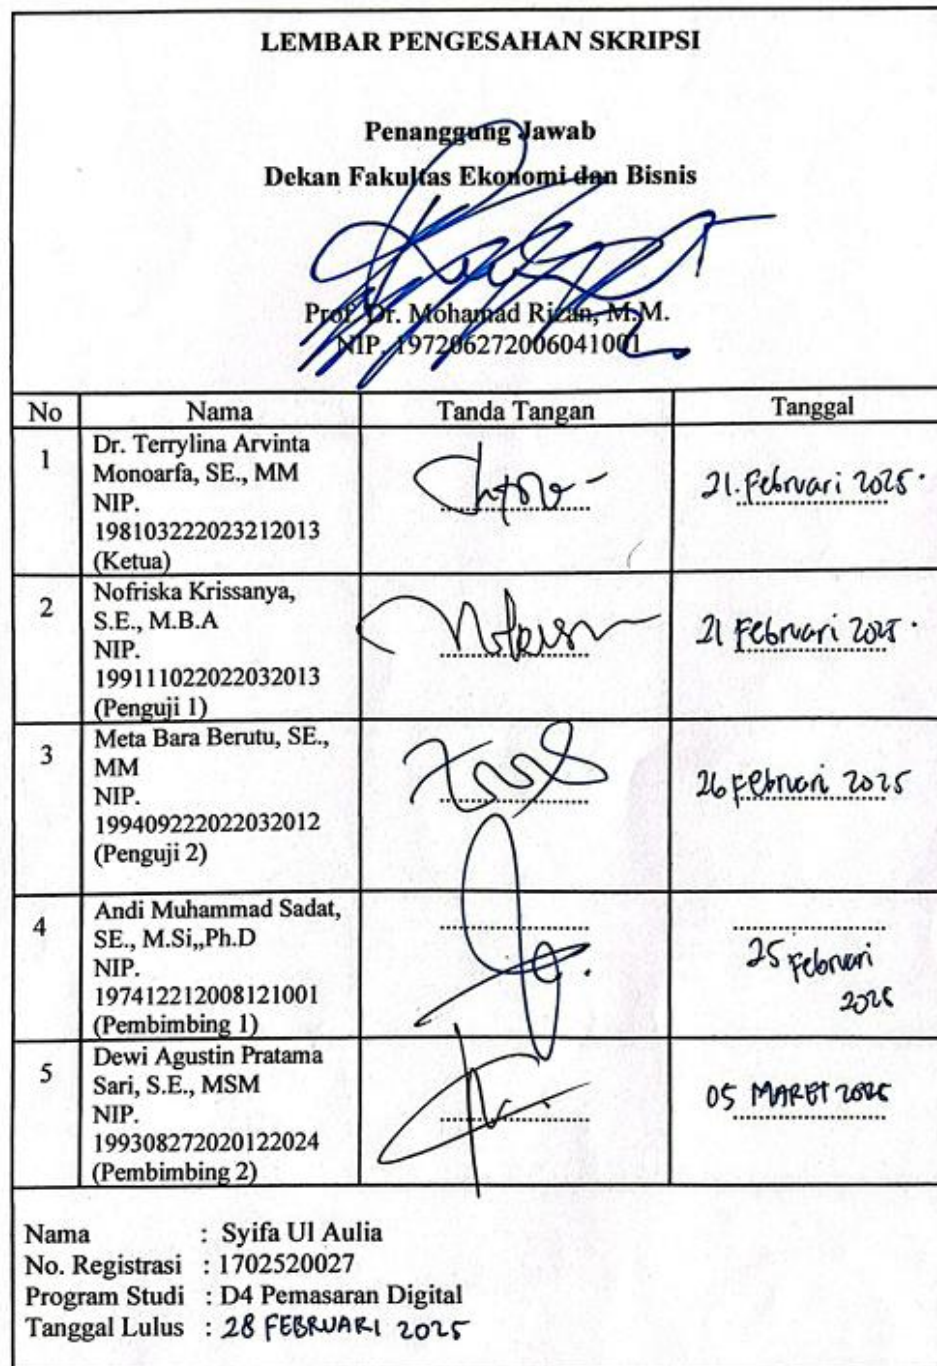 LEMBAR PENGESAHAN SKRIPSI
Penanggung Jawab
Dekan Fakultas Ekonomi dan Bisnis
Prof. Dr. Mohamad Rizan, M.M.
NIP. 197206272006041001
No Nama Tanda Tangan Tanggal
1 Dr. Terrylina Arvinta
Monoarfa, SE., MM
NIP.
198103222023212013
(Ketua)
21. Februari 2025.
2 Nofriska Krissanya,
S.E., M.B.A
NIP.
199111022022032013
(Penguji 1)
21 Februari 2025.
3 Meta Bara Berutu, SE.,
MM
NIP.
199409222022032012
(Penguji 2)
26 Februari 2025
4 Andi Muhammad Sadat,
SE., M.Si,,Ph.D
NIP.
197412212008121001
(Pembimbing 1)
25 Februari
2025
5 Dewi Agustin Pratama
Sari, S.E., MSM
NIP.
199308272020122024
(Pembimbing 2)
05 MARET 2025
Nama : Syifa Ul Aulia
No. Registrasi : 1702520027
Program Studi : D4 Pemasaran Digital
Tanggal Lulus : 28 FEBRUARI 2025